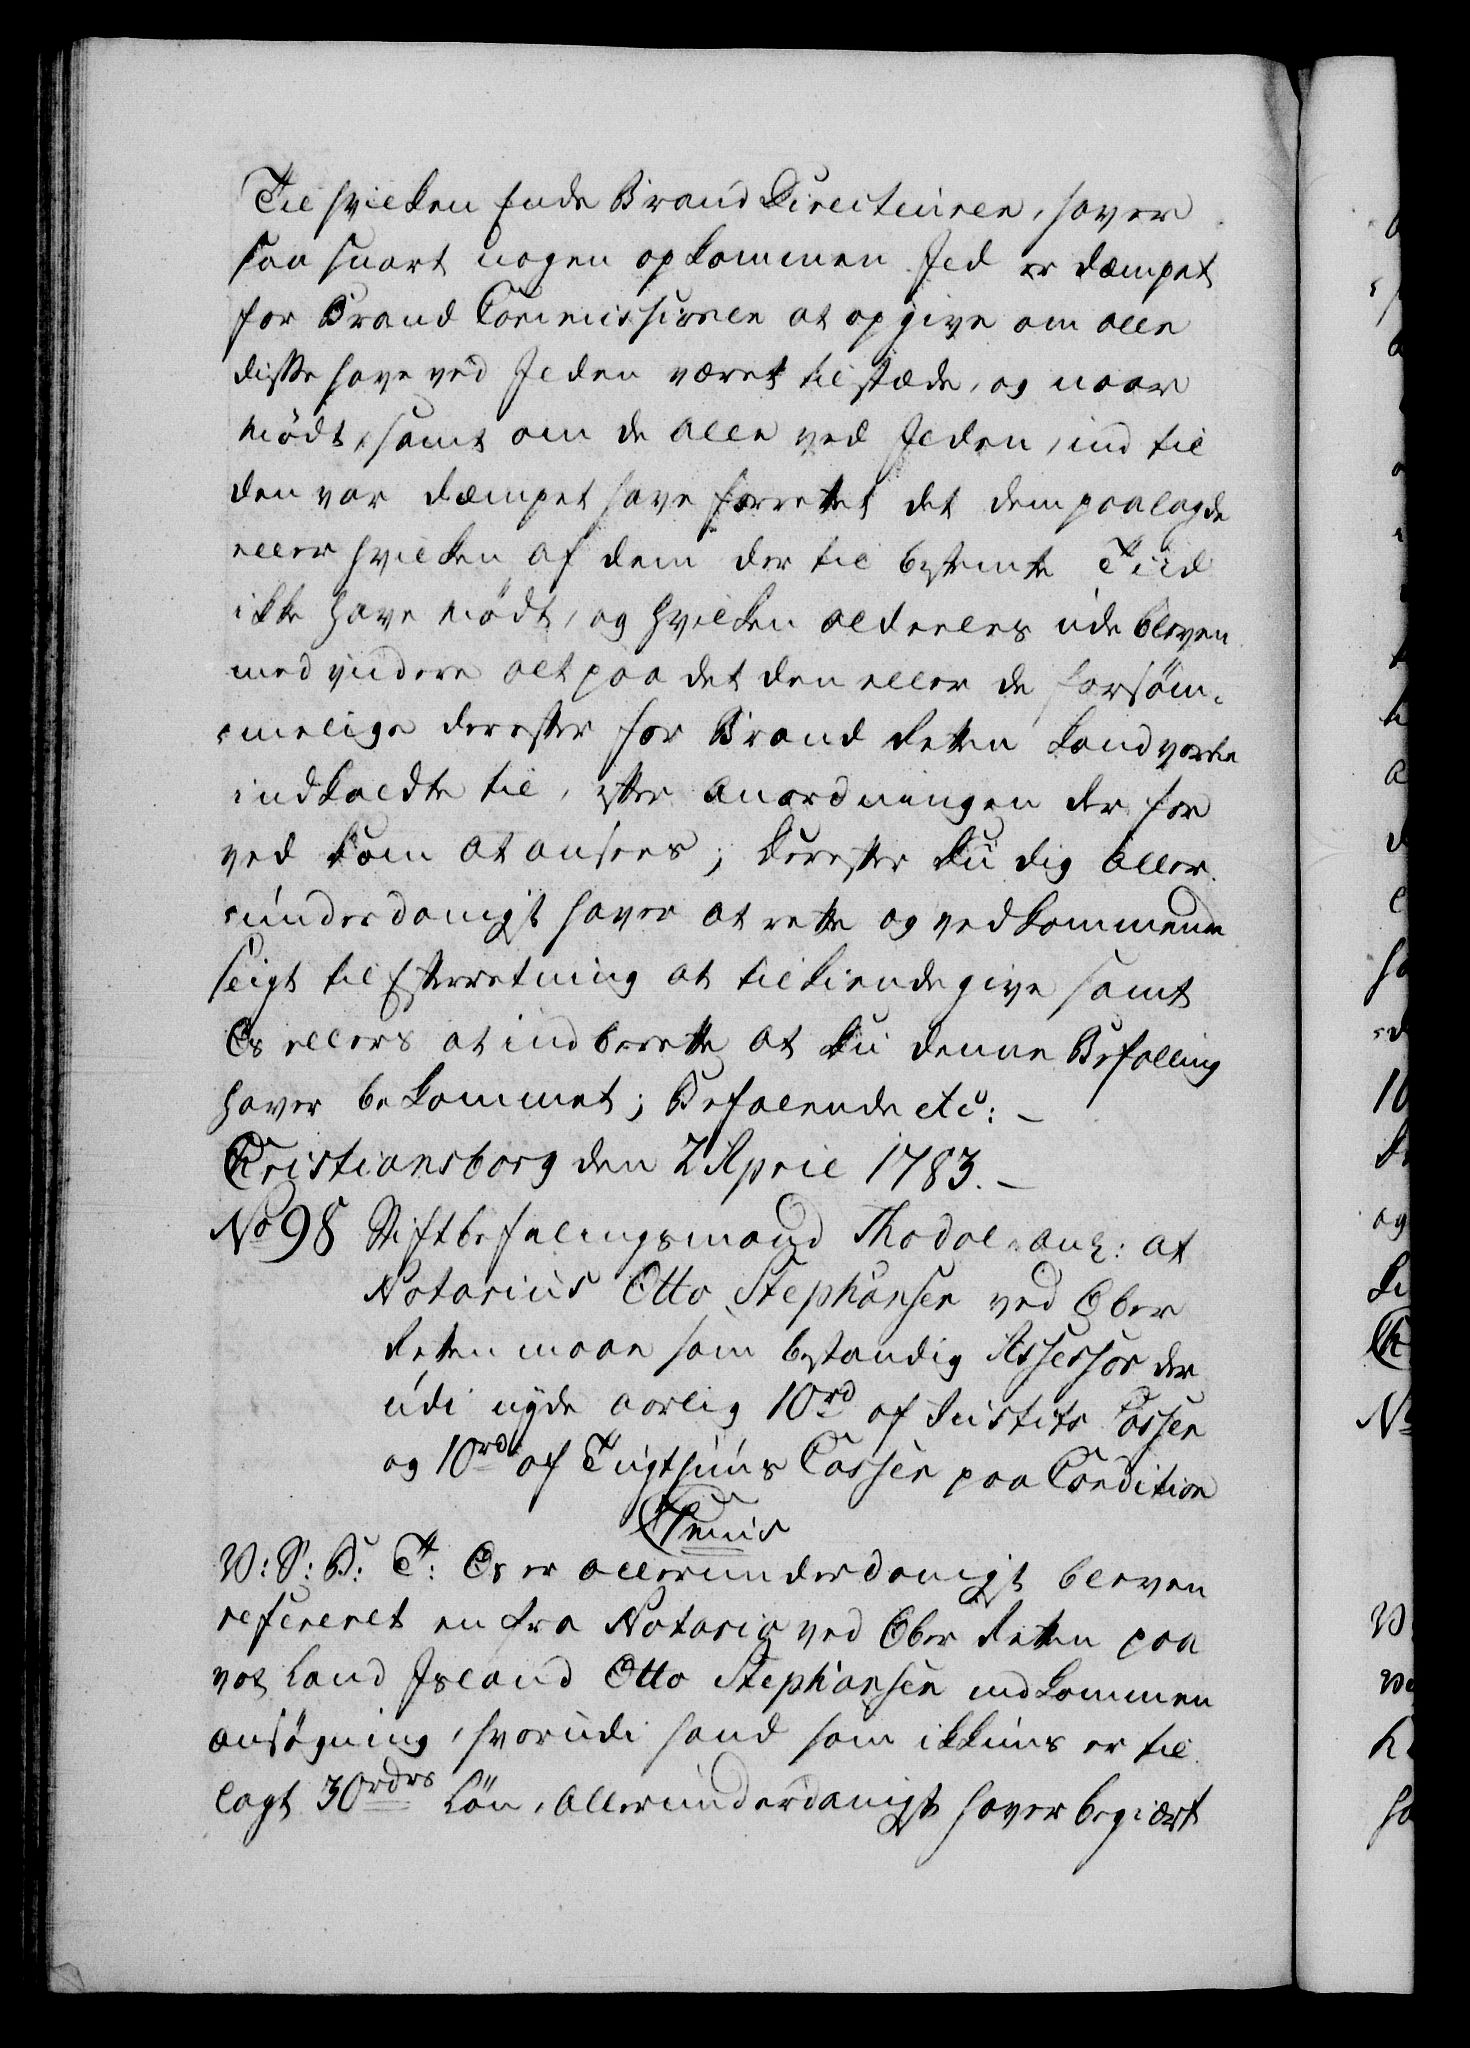 Til hvilken Ende Brand Directeuren, haver
saa snart nogen opkommen Jld er dæmpet
for Brand Commissionen at opgive om alle
disse have ved Jlden været tilstæde, og naar
mödt, samt om de alle ved Jlden, ind til
den var dæmpet have forrettet det dem paalagde
eller hvilken af dem der til bestemte Tiid
ikke have mödt, og hvilken aldeeles ude bleven
med videre alt paa det den eller de forsöm-
melige derefter for Brand Retten kand vorde
indkaldte til, efter Anordningen der for
ved kom at ansees; Derefter Du dig aller-
underdanigst haver at rette og vedkommende
sligt til Efterretning at tilkiende give samt
Os ellers at indberette at Du denne Befalling
haver bekommet; Befalende etc: -
Christiansborg den 2 April 1783. -
No 98 Stiftbefalingsmand Thodal anl: at
Notarius Otto Stephansen ved Ober
Retten maae som bestandig Assessor der
udi nyde aarlig 10rd af Justits Cassen
og 10rd af Tugthuus Cassen paa Condition
C7mus
V: S: B: T: Os er allerunderdanigst bleven
refereret en fra Notario ved Ober Retten paa
vot Land Jsland Otto Stephansen indkommen
ansøgning, hvorudi hand som ikkuns er til
lagt 30rdrs Lön, Allerunderdanigst haver begiært